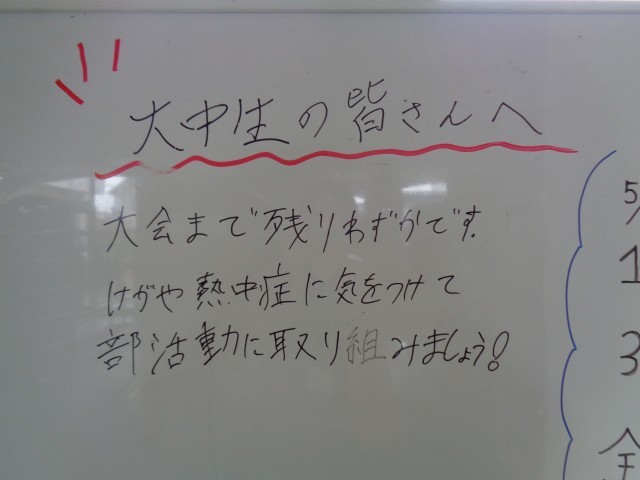 大中生の皆さんへ
大会まで残りわずかです。
けがや熱中症に気をつけて
部活動に取り組みましょう!
5/
1
3
全